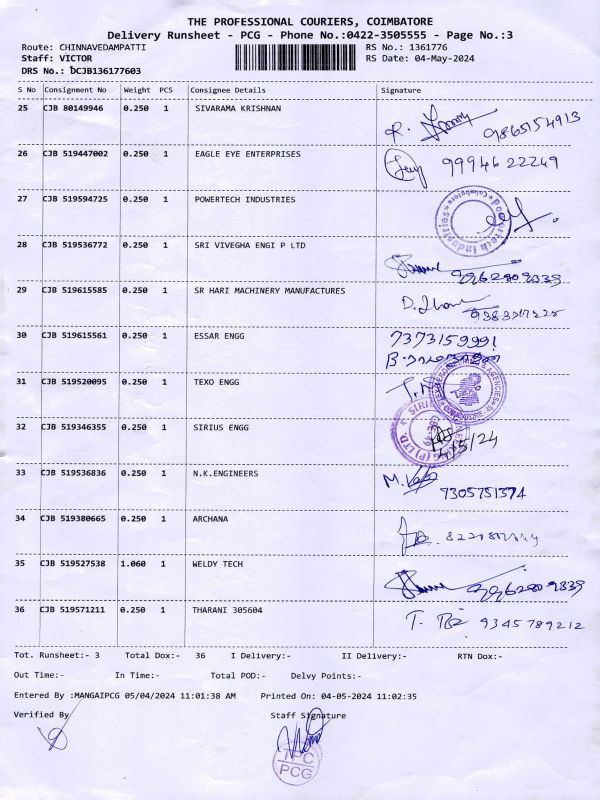 THE PROFESSIONAL COURIERS, COIMBATORE
Delivery Runsheet - PCG - Phone No.:0422-3505555 - Page No.:3
Route: CHINNAVEDAMPATTI RS No.: 1361776
Staff: VICTOR RS Date: 04-May-2024
DRS No.: DCJB136177603
S No Consignment No Weight PCS Consignee Details Signature
25 CJB 80149946 0.250 1 SIVARAMA KRISHNAN
R. 9865154913
26 CJB 519447002 0.250 1 EAGLE EYE ENTERPRISES
99946 22249
27 CJB 519594725 0.250 1 POWERTECH INDUSTRIES
28 CJB 519536772 0.250 1 SRI VIVEGHA ENGI P LTD
9962809839
29 CJB 519615585 0.250 1 SR HARI MACHINERY MANUFACTURES
30 CJB 519615561 0.250 1 ESSAR ENGG 7373159991
31 CJB 519520095 0.250 1 TEXO ENGG
32 CJB 519346355 0.250 1 SIRIUS ENGG
4/5/24
33 CJB 519536836 0.250 1 N.K.ENGINEERS
7305751374
34 CJB 519380665 0.250 1 ARCHANA
35 CJB 519527538 1.060 1 WELDY TECH
9962809839
36 CJB 519571211 0.250 1 THARANI 305604
T. 9345789212
Tot. Runsheet:- 3 Total Dox:- 36 I Delivery:- II Delivery:- RTN Dox:-
Out Time:- In Time:- Total POD:- Delvy Points:-
Entered By :MANGAIPCG 05/04/2024 11:01:38 AM Printed On: 04-05-2024 11:02:35
Verified By Staff Signature
TPC
PCG